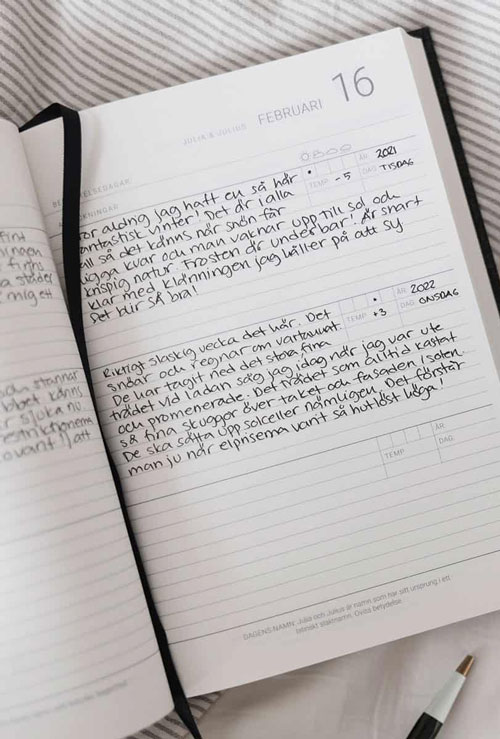 JULIA & JULIUS FEBRUARI 16
ÅR 2021
TEMP -5 DAG TISDAG
aldrig jag haft en så här
antastisk vinter! Det är i alla
så det känns när snön får
ligga kvar och man vaknar upp till sol och
krispig natur. Frosten är underbar! Är snart
klar med klänningen jag håller på att sy.
Det blir så bra!
ÅR 2022
TEMP +3 DAG ONSDAG
Riktigt slaskig vecka det här. Det
snöar och regnar om vartannat.
De har tagit ned det stora fina
trädet vid ladan såg jag idag när jag var ute
och promenerade. Det trädet som alltid kastat
så fina skuggor över taket och fasaden i solen.
De ska sätta upp solceller nämligen. Det förstår
man ju när elpriserna varit så hutlöst höga!
ÅR
TEMP DAG
DAGENS NAMN: Julia och Julius är namn som har sitt ursprung i ett
latinskt släktnamn. Ovita betydelse.